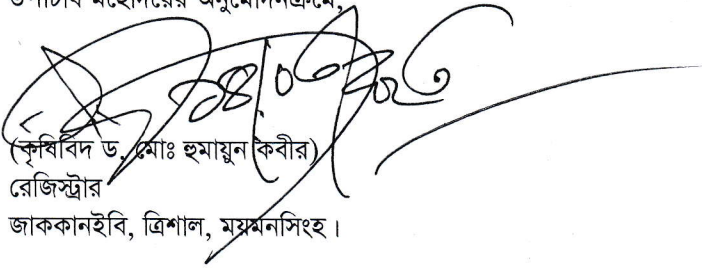 উপাচার্য মহোদয়ের অনুমোদনক্রমে,
(কৃষিবিদ ড. মোঃ হুমায়ুন কবীর)
রেজিস্ট্রার
জাককানইবি, ত্রিশাল, ময়মনসিংহ।